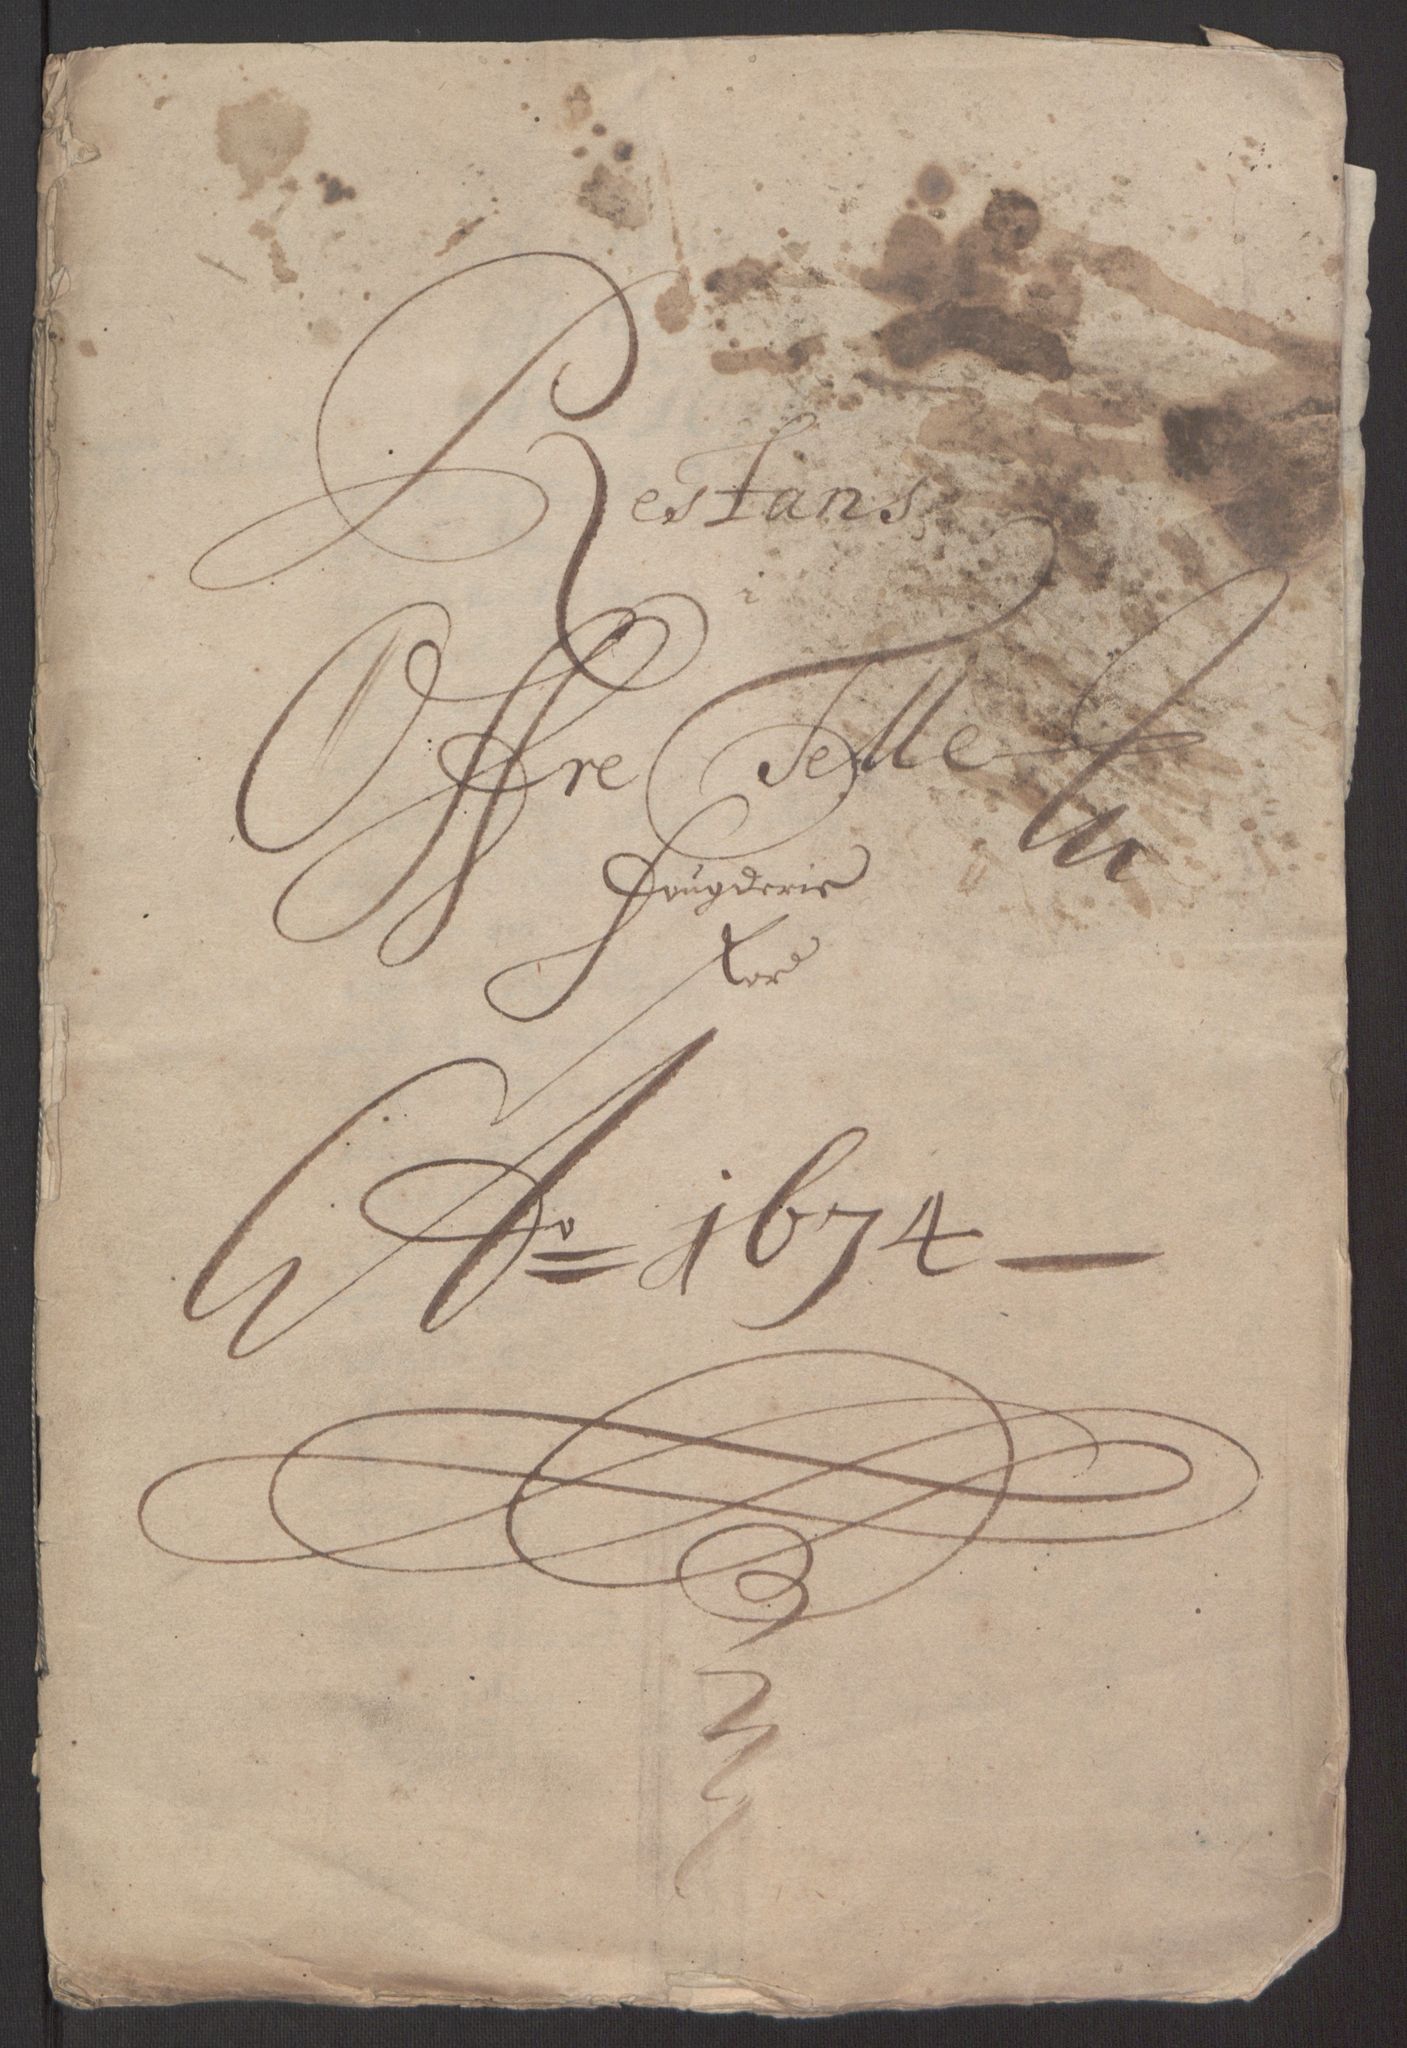 Restans
i
Offre Tellemr
fougderie
for
Ao 1674